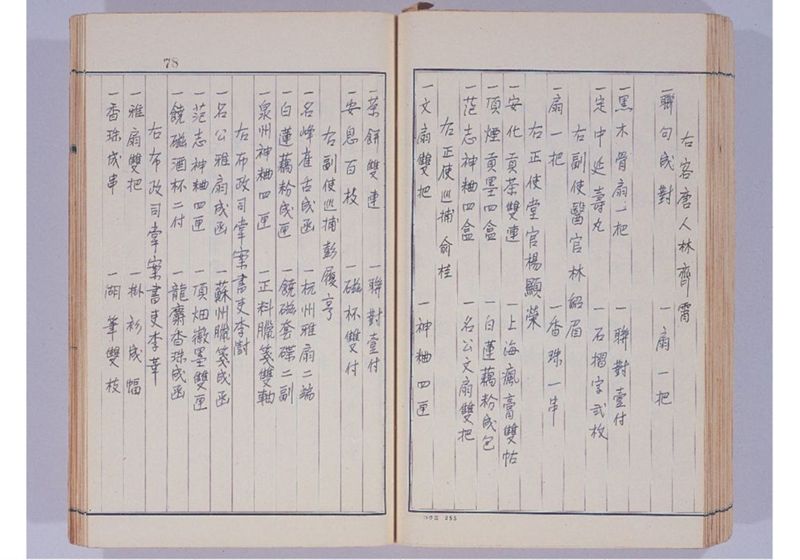 右客唐人林齊霄
一聯句成對 一扇一把
一黑木骨扇一把 一聯對壹付
一定中延壽丸 一石摺字弍枚
右副使醫官林紹眉
一扇一把 一香珠一串
右正使堂官楊顯榮
一安化貢茶雙連 一上海瘋膏雙帖
一頂煙貢墨四盒 一白蓮藕粉成包
一范志神粬四盒 一名公文扇雙把
右正使巡捕俞桂
一文扇雙把 一神粬四匣
78
一茶餅雙連 一聯對壹付
一安息百枝 一磁杯雙付
右副使巡捕彭履亨
一名峰雀舌成函 一杭州雅扇二端
一白蓮藕粉成匣 一饒磁套碟二副
一泉州神粬四匣 一正料臘箋雙軸
右布政司掌案書吏李澍
一名公雅扇成函 一蘇州臘箋成函
一范志神粬四匣 一頂烟徽墨雙匣
一饒磁酒杯二付 一龍麝香珠成函
右布政司掌案書吏李華
一雅扇雙把 一掛衫成幅
一香珠成串 一湖筆雙枝